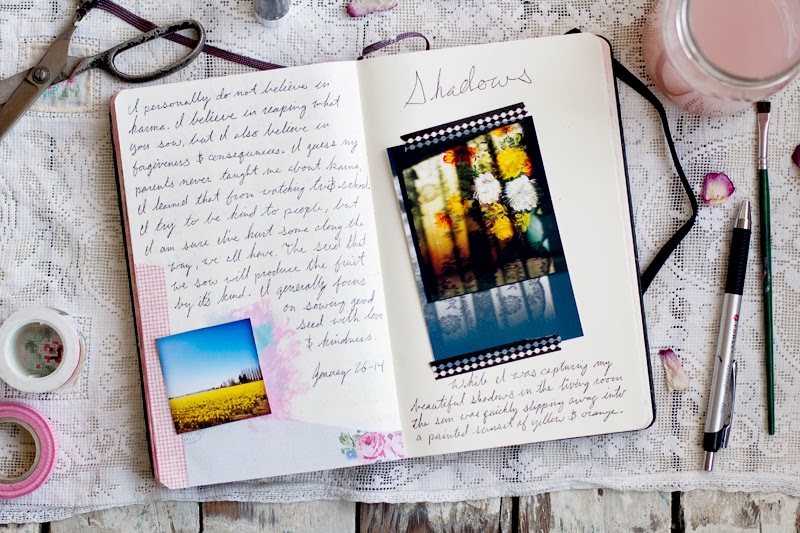 I personally do not believe in
karma. I believe in reaping what
you sow, but I also believe in
forgiveness & consequences. I guess my
parents never taught me about karma,
I learned that from watching tv & school.
I try to be kind to people, but
I am sure I've hurt some along the
way, we all have. The seed that
we sow will produce the fruit
by its kind. I generally focus
on sowing good
seed with love
& kindness.
January 26-14
Shadows
While I was capturing my
beautiful shadows in the living room
the sun was quickly slipping away into
a painted sunset of yellow & orange.